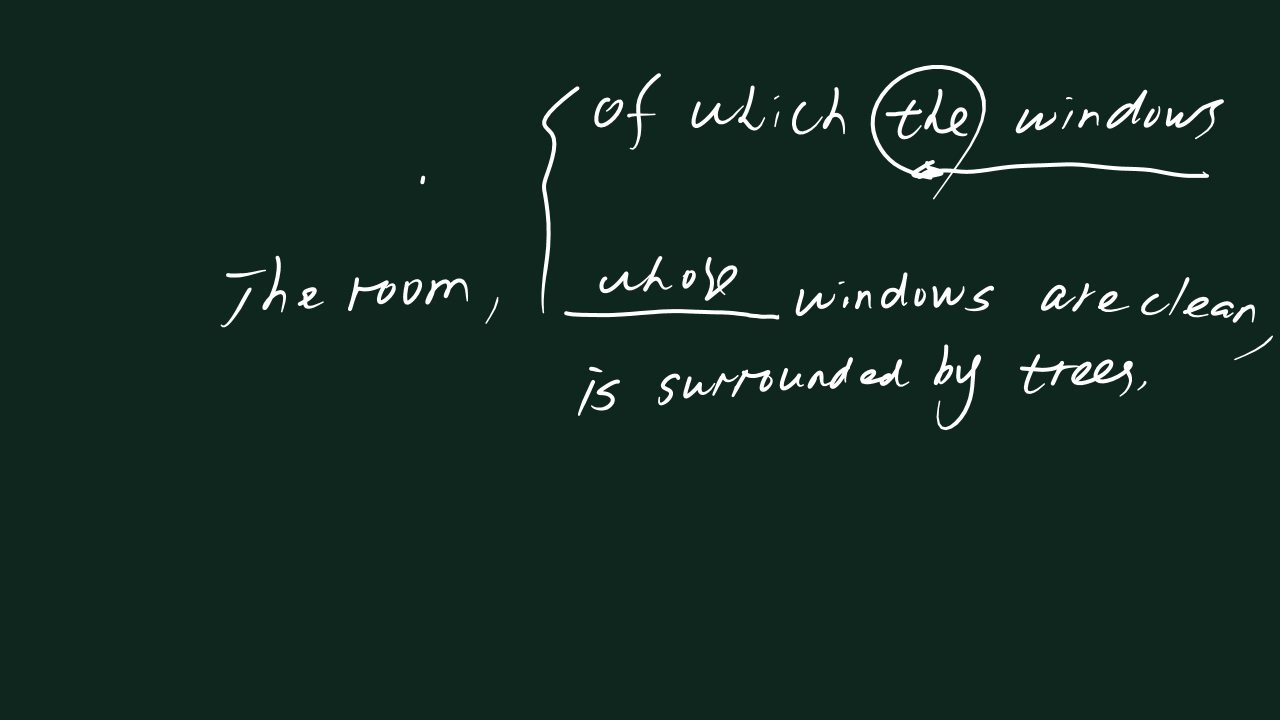 of which the windows
The room, whose windows are clean,
is surrounded by trees.